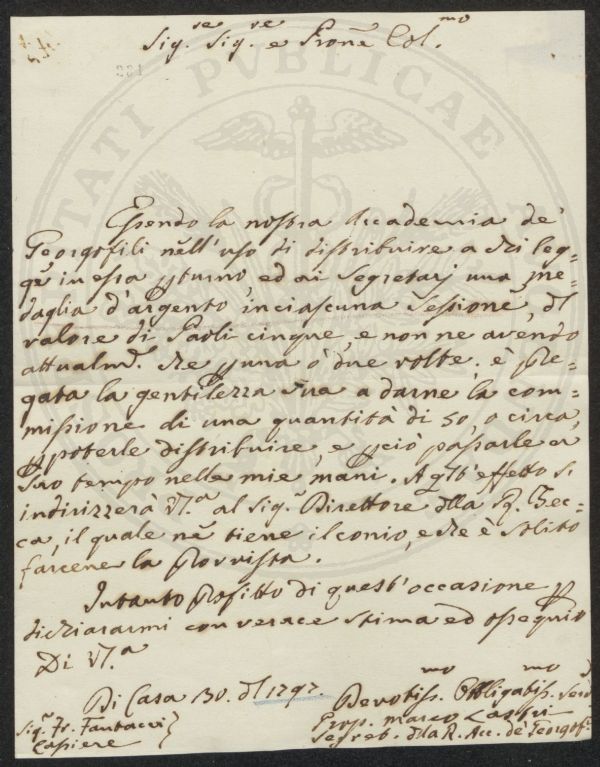 Sig.re Sig.re e Prone Col.mo
Essendo la nostra Accademia de'
Georgofili nell'uso di distribuire a chi leg=
ge in essa p turno, ed ai Segretarj una me=
daglia d'argento in ciascuna Sessione, dl
valore di Paoli cinque, e non ne avendo
attualm.e che p una ò due volte; è pre=
gata la gentilezza sua a darne la com=
missione di una quantità di 50, o circa,
p poterle distribuire, e pciò passarle a
suo tempo nelle mie mani. A qsto effetto si
indirizzerà V.a al Sig.r Direttore dlla R. Zec=
ca, il quale ne tiene il conio, e che è solito
farcene la provvista.
Intanto profitto di quest'occasione p
dichiararmi con verace stima ed ossequio
Di V.a
Di Casa 30. dl 1797.
Sig.r Fr. Fantacci
Cassiere
Devotiss.mo Obbligatiss.mo
Prop. Marco Lastri
Segret. dlla R. Acc. de' Georgof.
TATI PUBLICAE